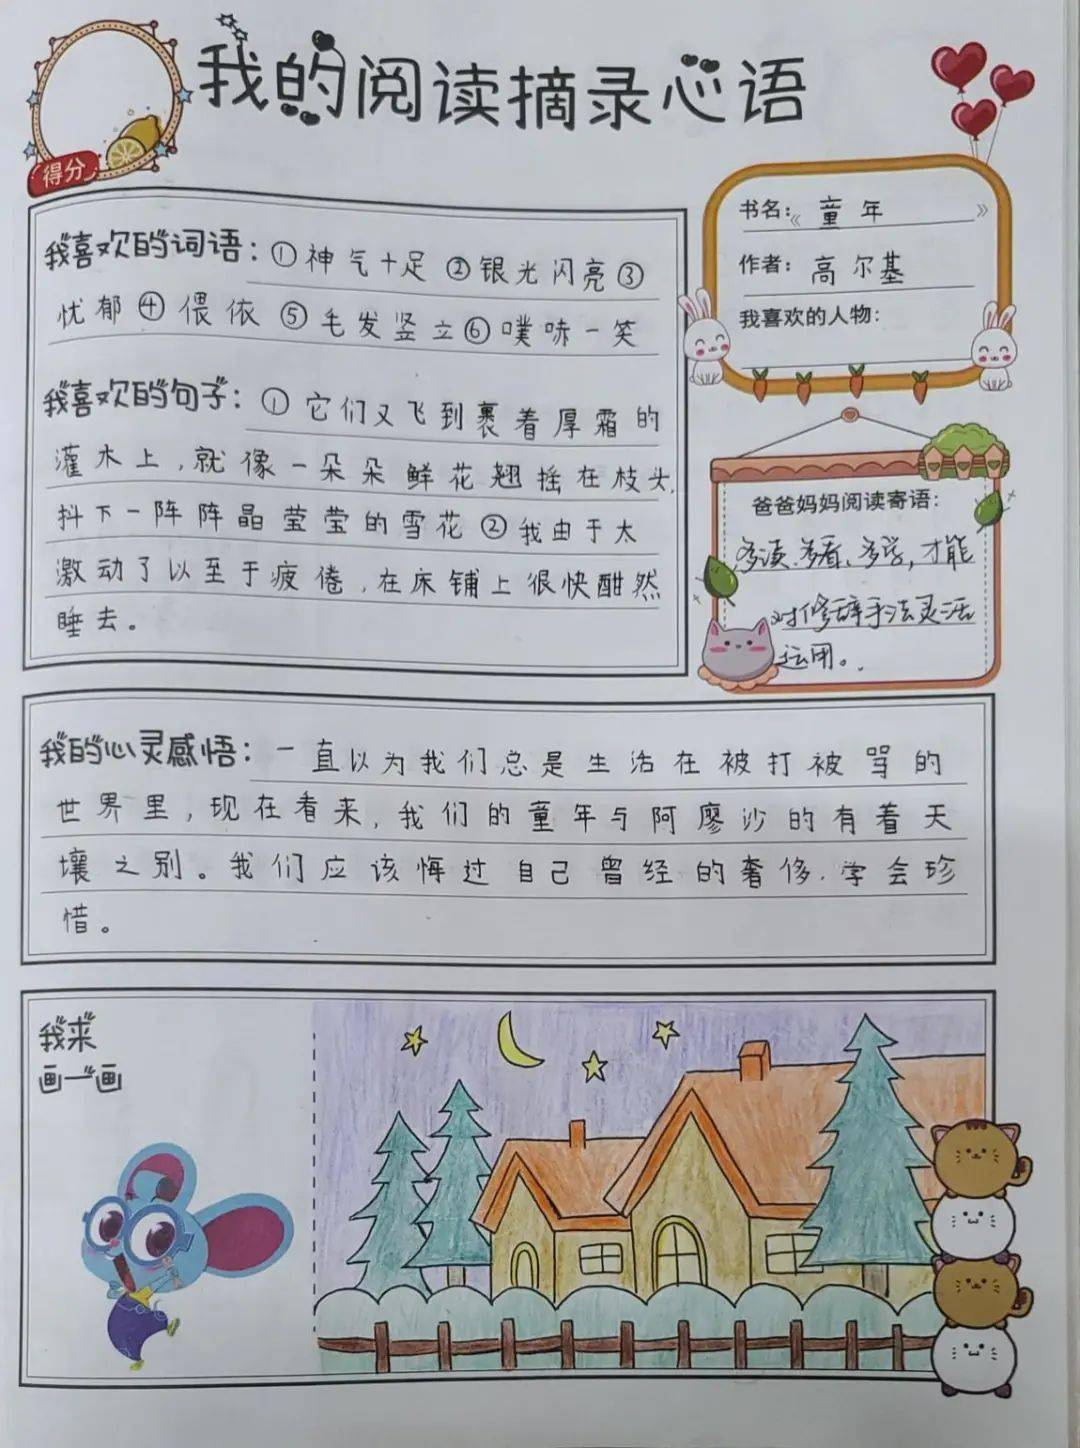 我的阅读摘录心语
得分
书名：《童年》
作者：高尔基
我喜欢的人物：
我喜欢的词语：①神气十足②银光闪亮③
忧郁④偎依⑤毛发竖立⑥噗哧一笑
我喜欢的句子：①它们又飞到裹着厚霜的
灌木上，就像一朵朵鲜花翘摇在枝头，
抖下一阵阵晶莹莹的雪花②我由于太
激动了以至于疲倦，在床铺上很快酣然
睡去。
爸爸妈妈阅读寄语：
多读、多看、多学，才能
对修辞手法灵活
运用。
我的心灵感悟：一直以为我们总是生活在被打被骂的
世界里，现在看来，我们的童年与阿廖沙的有着天
壤之别。我们应该悔过自己曾经的奢侈，学会珍
惜。
我来
画一画